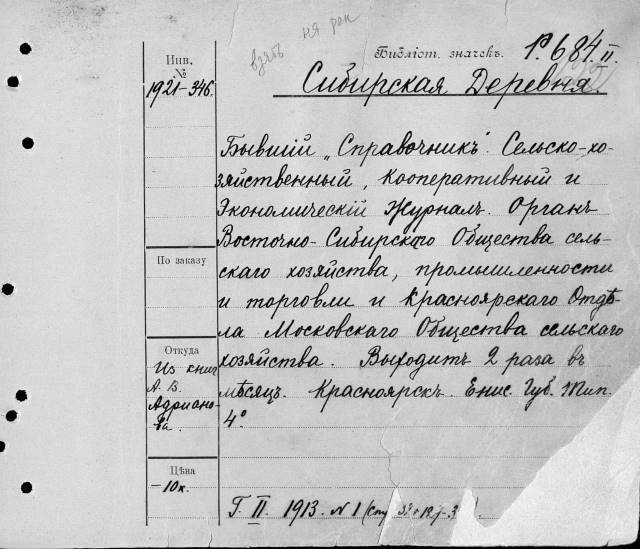 взять на рек
Инв.
№
1921-346.
Библіот. значекъ. Р.684.II.
Сибирская Деревня.
Бывшій „Справочникъ". Сельско-хо-
зяйственный, кооперативный и
Экономическій Журналъ. Органъ
Восточно-Сибирскаго Общества сель-
скаго хозяйства, промышленности
и торговли и Красноярскаго Отдѣ-
ла Московскаго Общества сельскаго
хозяйства. Выходитъ 2 раза въ
мѣсяцъ. Красноярскъ. Енис. Губ. Тип.
4°
По заказу
Откуда
Из книг
А. В.
Адриано-
ва.
Цѣна
-10к.
Г. II. 1913. N 1